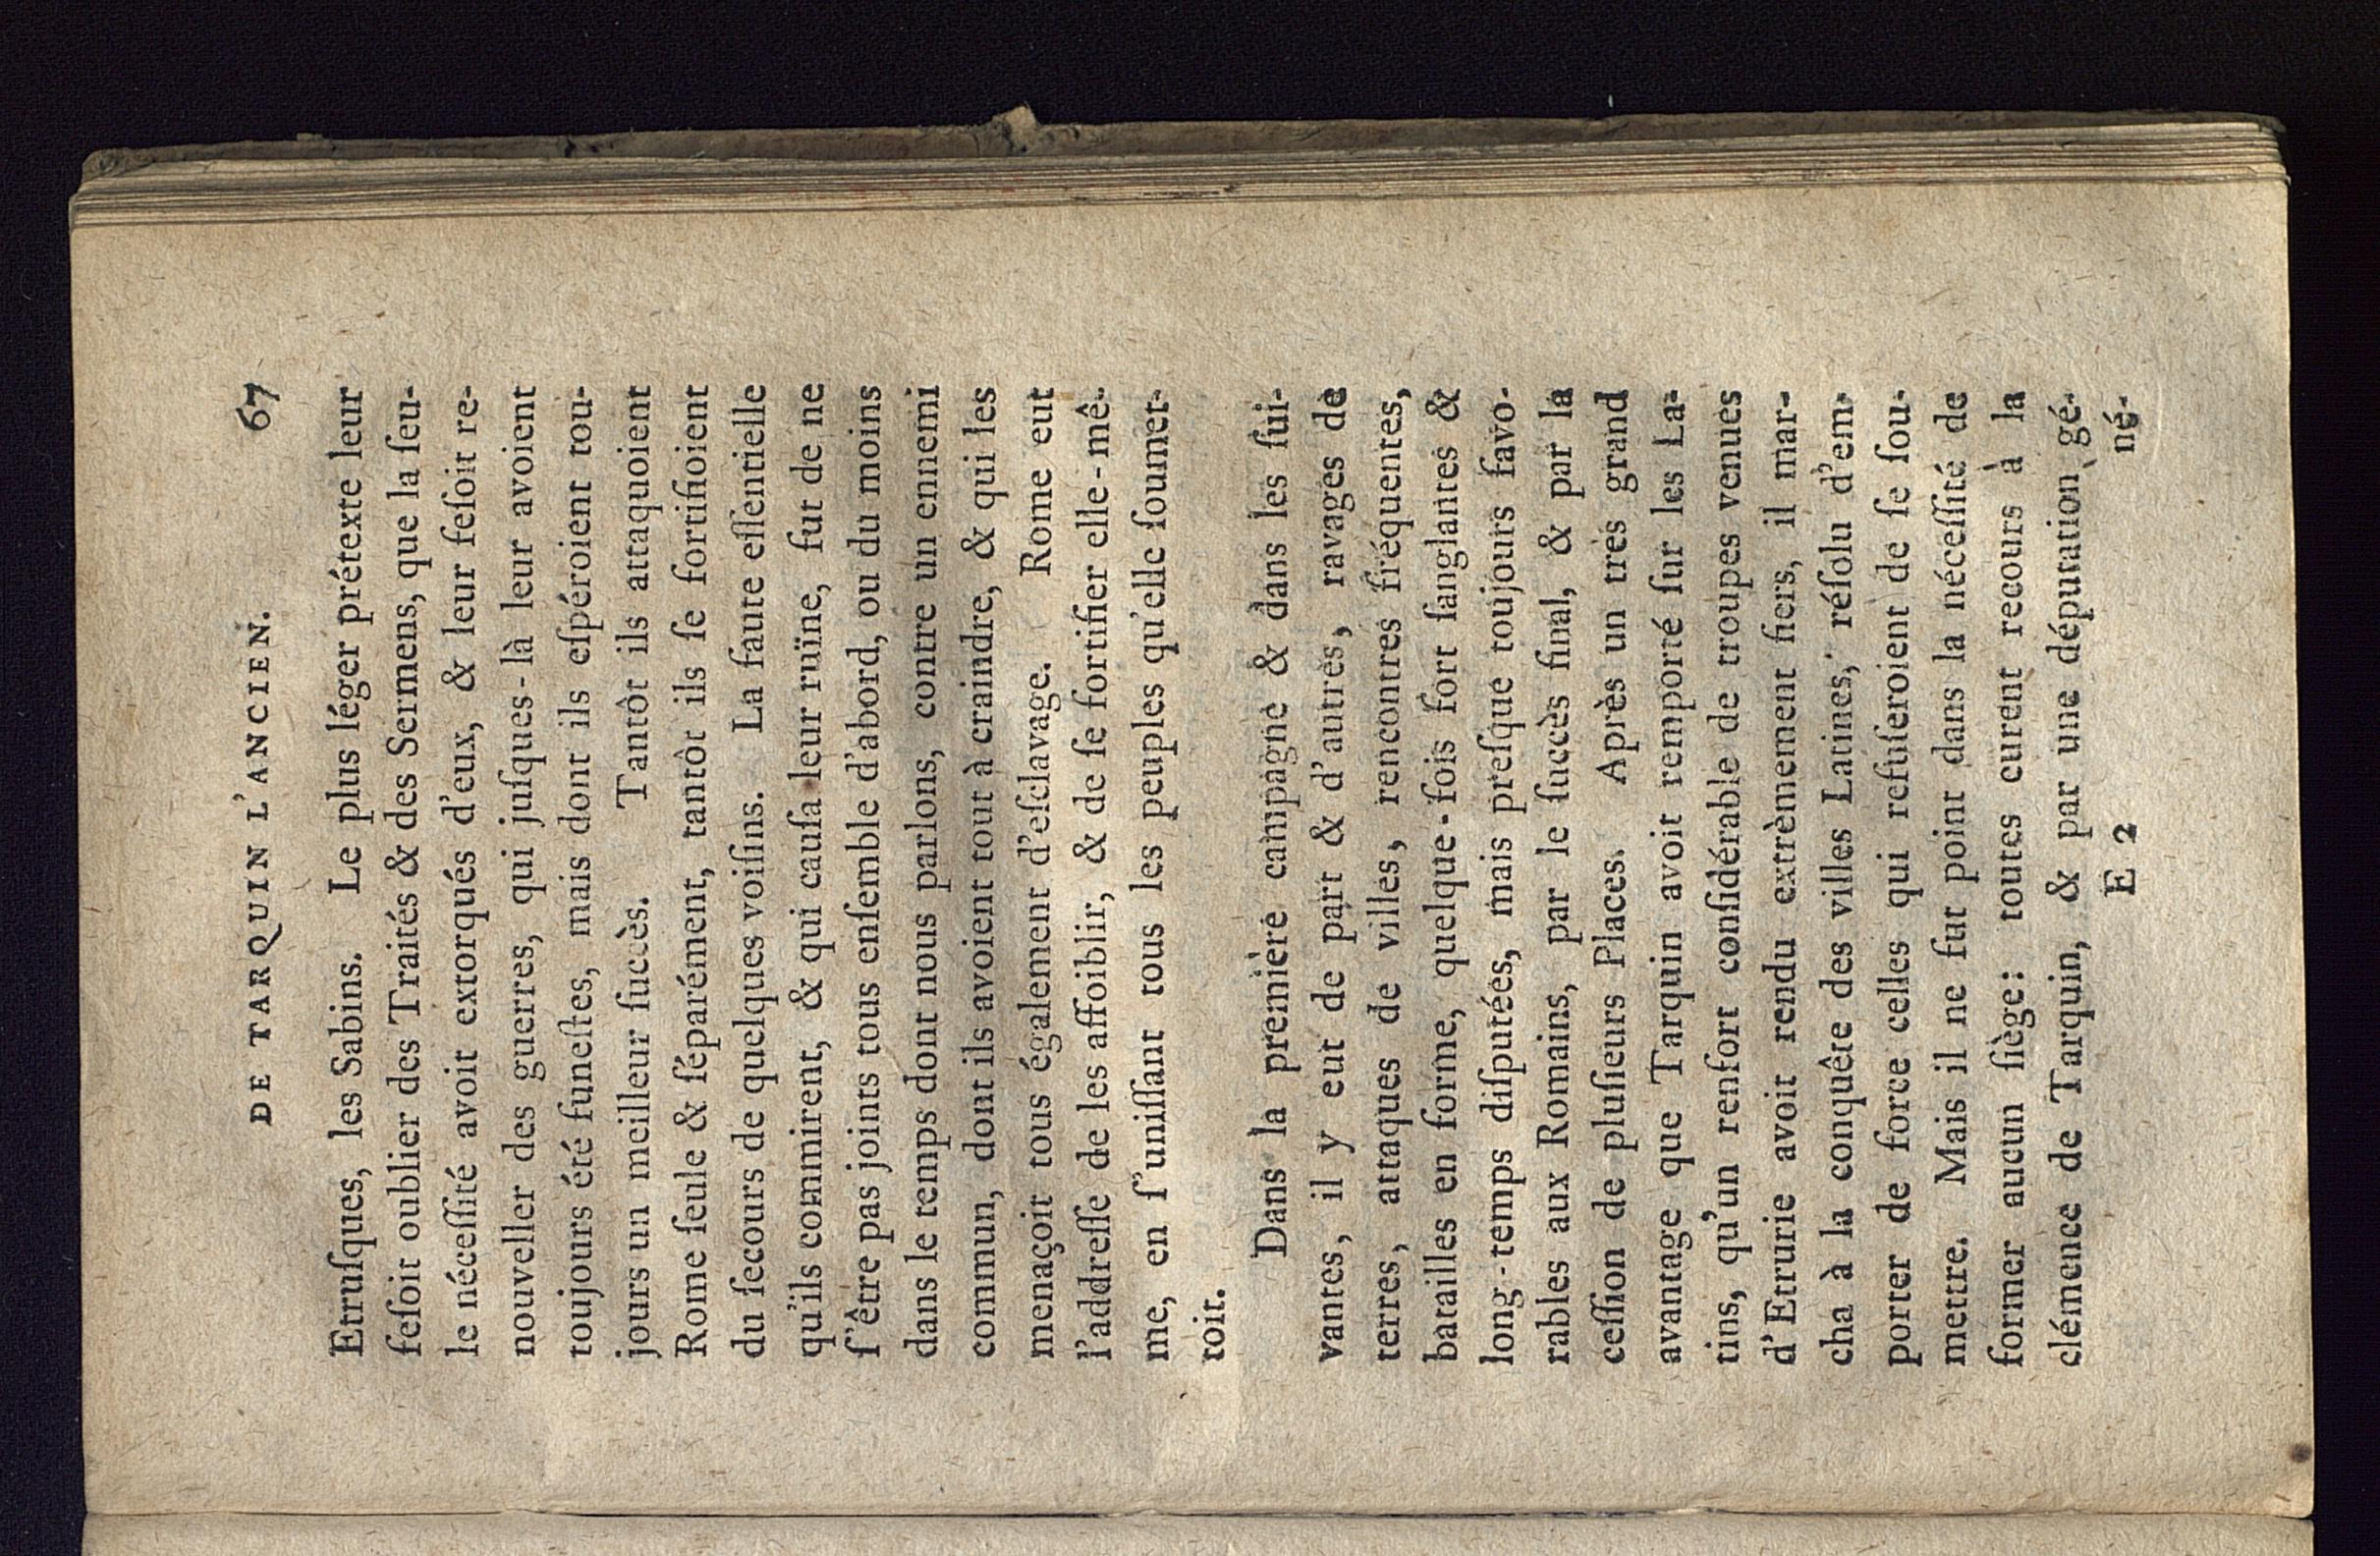 DE TARQUIN L'ANCIEN. 67
Etruſques, les Sabins. Le plus léger prétexte leur
feſoit oublier des Traités & des Sermens, que la ſeu-
le néceſſité avoit extorqués d'eux, & leur feſoit re-
nouveller des guerres, qui juſques-là leur avoient
toujours été funeſtes, mais dont ils eſpéroient tou-
jours un meilleur ſuccès. Tantôt ils attaquoient
Rome ſeule & ſéparément, tantôt ils ſe fortifioient
du ſecours de quelques voiſins. La faute eſſentielle
qu'ils commirent, & qui cauſa leur ruïne, fut de ne
ſ'être pas joints tous enſemble d'abord, ou du moins
dans le temps dont nous parlons, contre un ennemi
commun, dont ils avoient tout à craindre, & qui les
menaçoit tous également d'eſclavage. Rome eut
l'addreſſe de les affoiblir, & de ſe fortifier elle-mê-
me, en ſ'uniſſant tous les peuples qu'elle ſoumet-
toit.
Dans la première campagne & dans les ſui-
vantes, il y eut de part & d'autres, ravages de
terres, attaques de villes, rencontres fréquentes,
batailles en forme, quelque-fois fort ſanglantes &
long-temps diſputées, mais preſque toujours favo-
rables aux Romains, par le ſuccès final, & par la
ceſſion de pluſieurs Places. Après un très grand
avantage que Tarquin avoit remporté ſur les La-
tins, qu'un renfort conſidérable de troupes venues
d'Etrurie avoit rendu extrèmement fiers, il mar-
cha à la conquête des villes Latines, réſolu d'em-
porter de force celles qui refuſeroient de ſe ſou-
mettre. Mais il ne fut point dans la néceſſité de
former aucun ſiège: toutes eurent recours à la
clémence de Tarquin, & par une députation gé-
E 2 né-